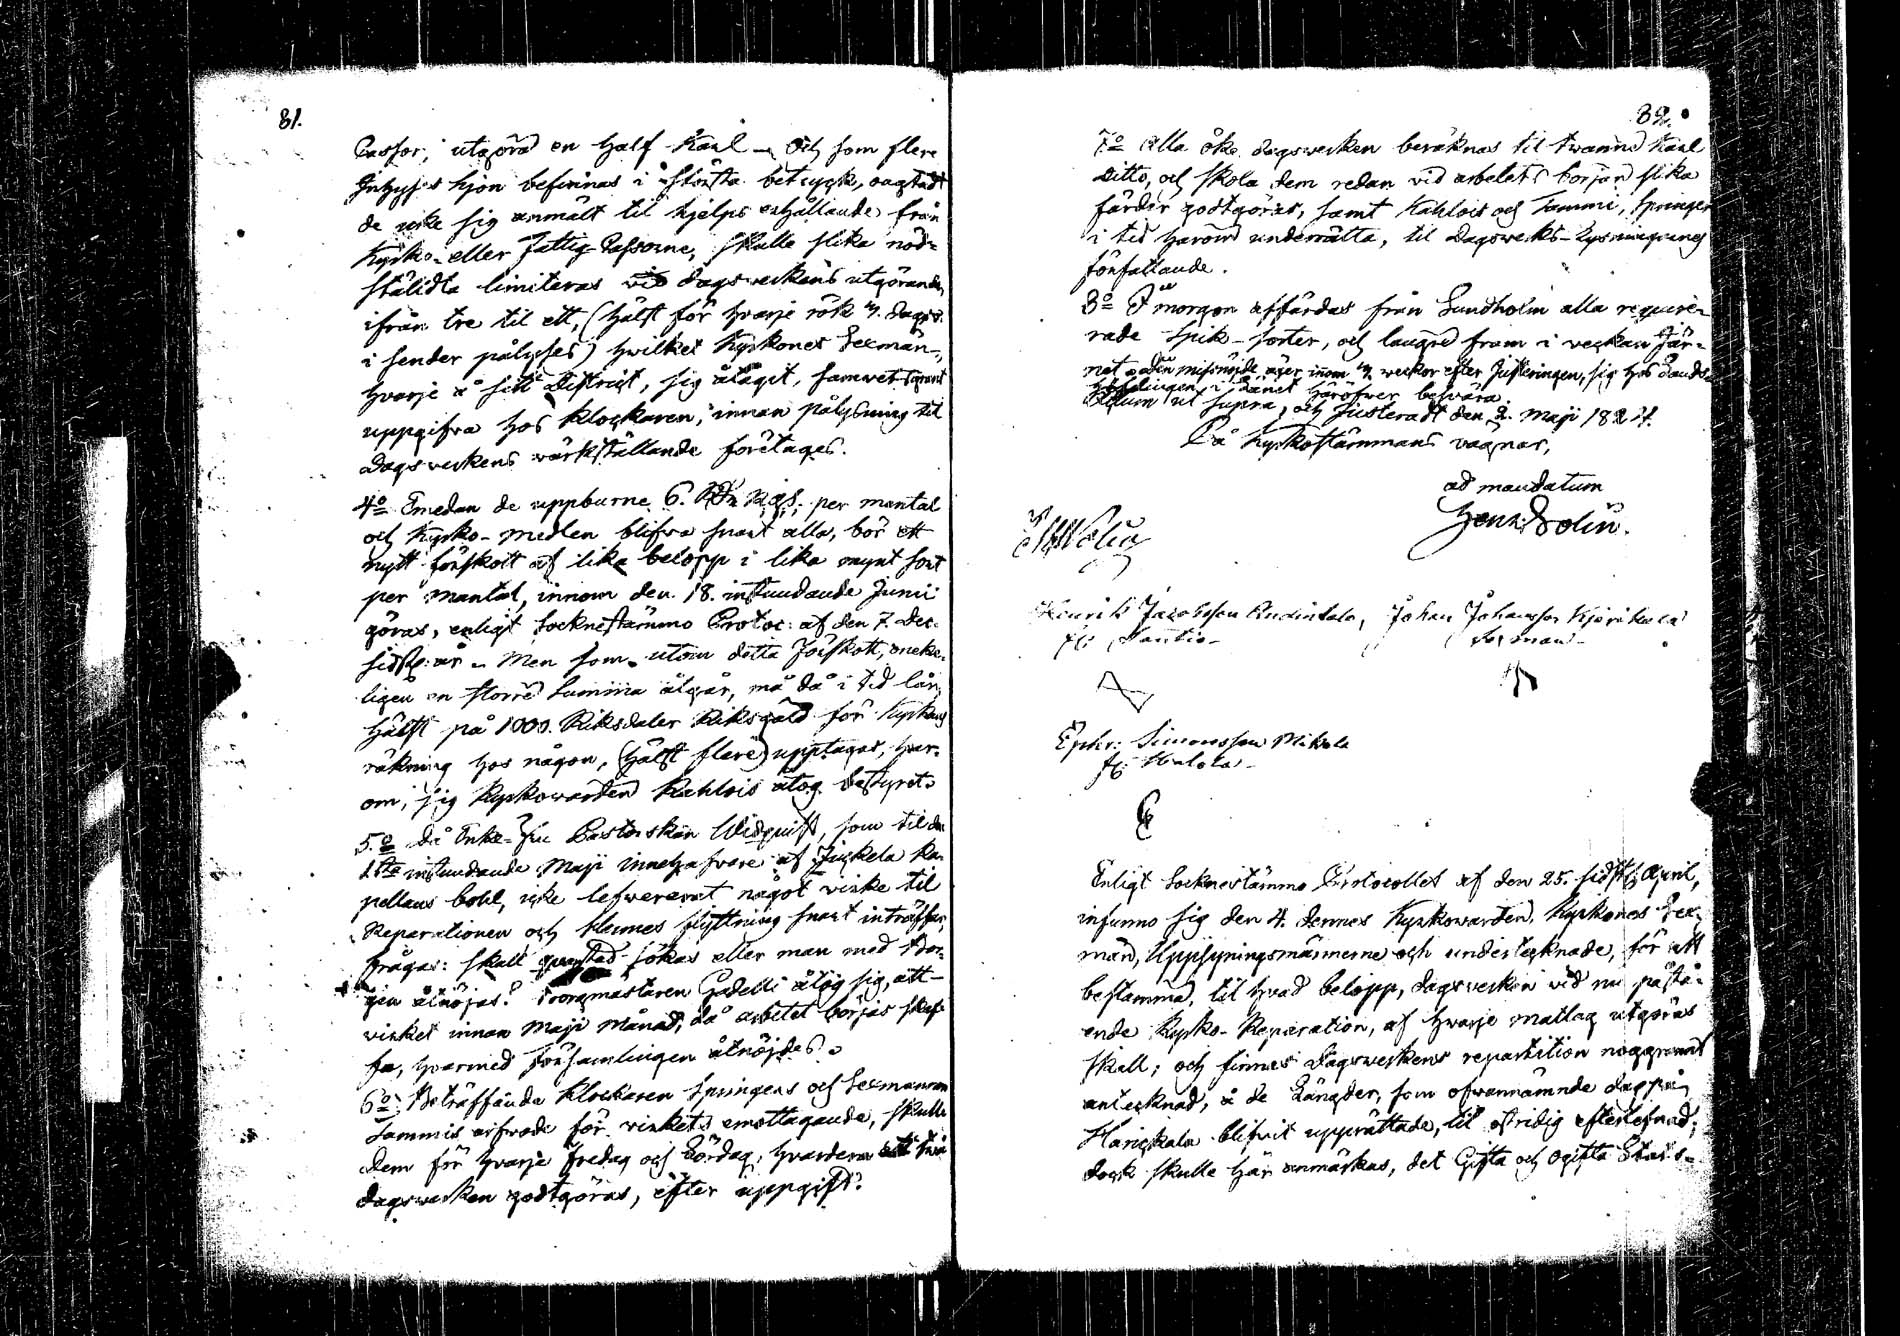 81.
Cassor, utgöra en half Karl – Och som flere
Inhyses hjon befinnas i största betryck, oagtadt
de icke sig anmält til hjelps erhållande från
Kyrko- eller Fattig Cassorne, skulle slika nöd-
stälda limiteras vid dagsverkens utgörande,
ifrån tre til ett, (hälst för hvarje rök
i sender pålyses) hvilket Kyrkones Sexmän,
hvarje å sitt District, sig åtagit, samvetsgrant
uppgifva hos Klockaren, innan pålysning til
Dagsverkens värkställande företages.
4o Emedan de uppburne 6. per mantal
och Kyrko-medlen blifva snart alla, bör ett
nytt förskott af lika belopp i lika mynt sort
per mantal, innom den 18. instundande Junii
göras, enligt Socknestämmo Protoc: af den 7. Dec.
sidstl: år. Men som utom detta Förskott,
en större Summa åtgår, må då i tid lån,
hälst på 1000. Riksdaler Riksgäld för Kyrkans
räkning hos någon, (hälst flere) upptagas, hvar-
om, sig Kyrkowärden Kahlois åtog bestyret.
5.o Då Enke-Fru Pastorskan Widquist, som til den
1sta instundande Maji innehafvare af Juckela ka-
pellans bohl, icke lefvererat något virke til
Reparationen och hennes flyttning snart inträffar,
frågas: skall sökas eller man med
åtnöjas? Gadelli åtog sig, att
virket innan Maji månad, då arbetet börjas
fa, hvarmed församlingen åtnöjdes.
6o: Beträffande Klockaren Springers och Sexmannen
Tammis arfvode för virkets emottagande, skulle
dem för hvarje Fredag och Lördag, hvardera två
dagsverken godtgöras, efter uppgift.
82.
7o Alla öke dagsverken beräknas til tvänne Karl
Ditto, och skola dem redan vid arbetets början slika
färder godtgöras, samt Kahlois och Tammi, Springer
i tid härom underrätta, til Dagsverks-Lysningarnes
författande.
8o I morgon affärdas från Sundholm alla require-
rade Spik-sorter, och långre fram i veckan Jär-
net den missnöjde äger inom veckor efter Justeringen, sig hos Lands
Höfdingen i Länet häröfver besvära.
Datum ut supra, och Justeradt den 2. Maji 1824.
På Kyrkostämmans vägnar,
ad mandatum
Henr: Bolin.
Henrik Jacobsson Johan Johansson
Sexman
Ephr: Simonsson Mikola
Enligt Socknestämmo Protocollet af den 25. sidstl: April,
infunno sig den 4. dennes Kyrkowärden, Kyrkones Sex-
män, Uppsyningsmännerne och undertecknade, för att
bestämma, til hvad belopp, dagsverken vid nu påstå-
ende Kyrko-Reparation, af hvarje matlag utgöras
skall; och finnes Dagsverkens repartition noggrannt
antecknad, å de Längder, som ofvannämnde dag på
blifvit upprättade, til ostridig efterlefnad;
dock skulle här anmärkas, det Gifta och Ogifta